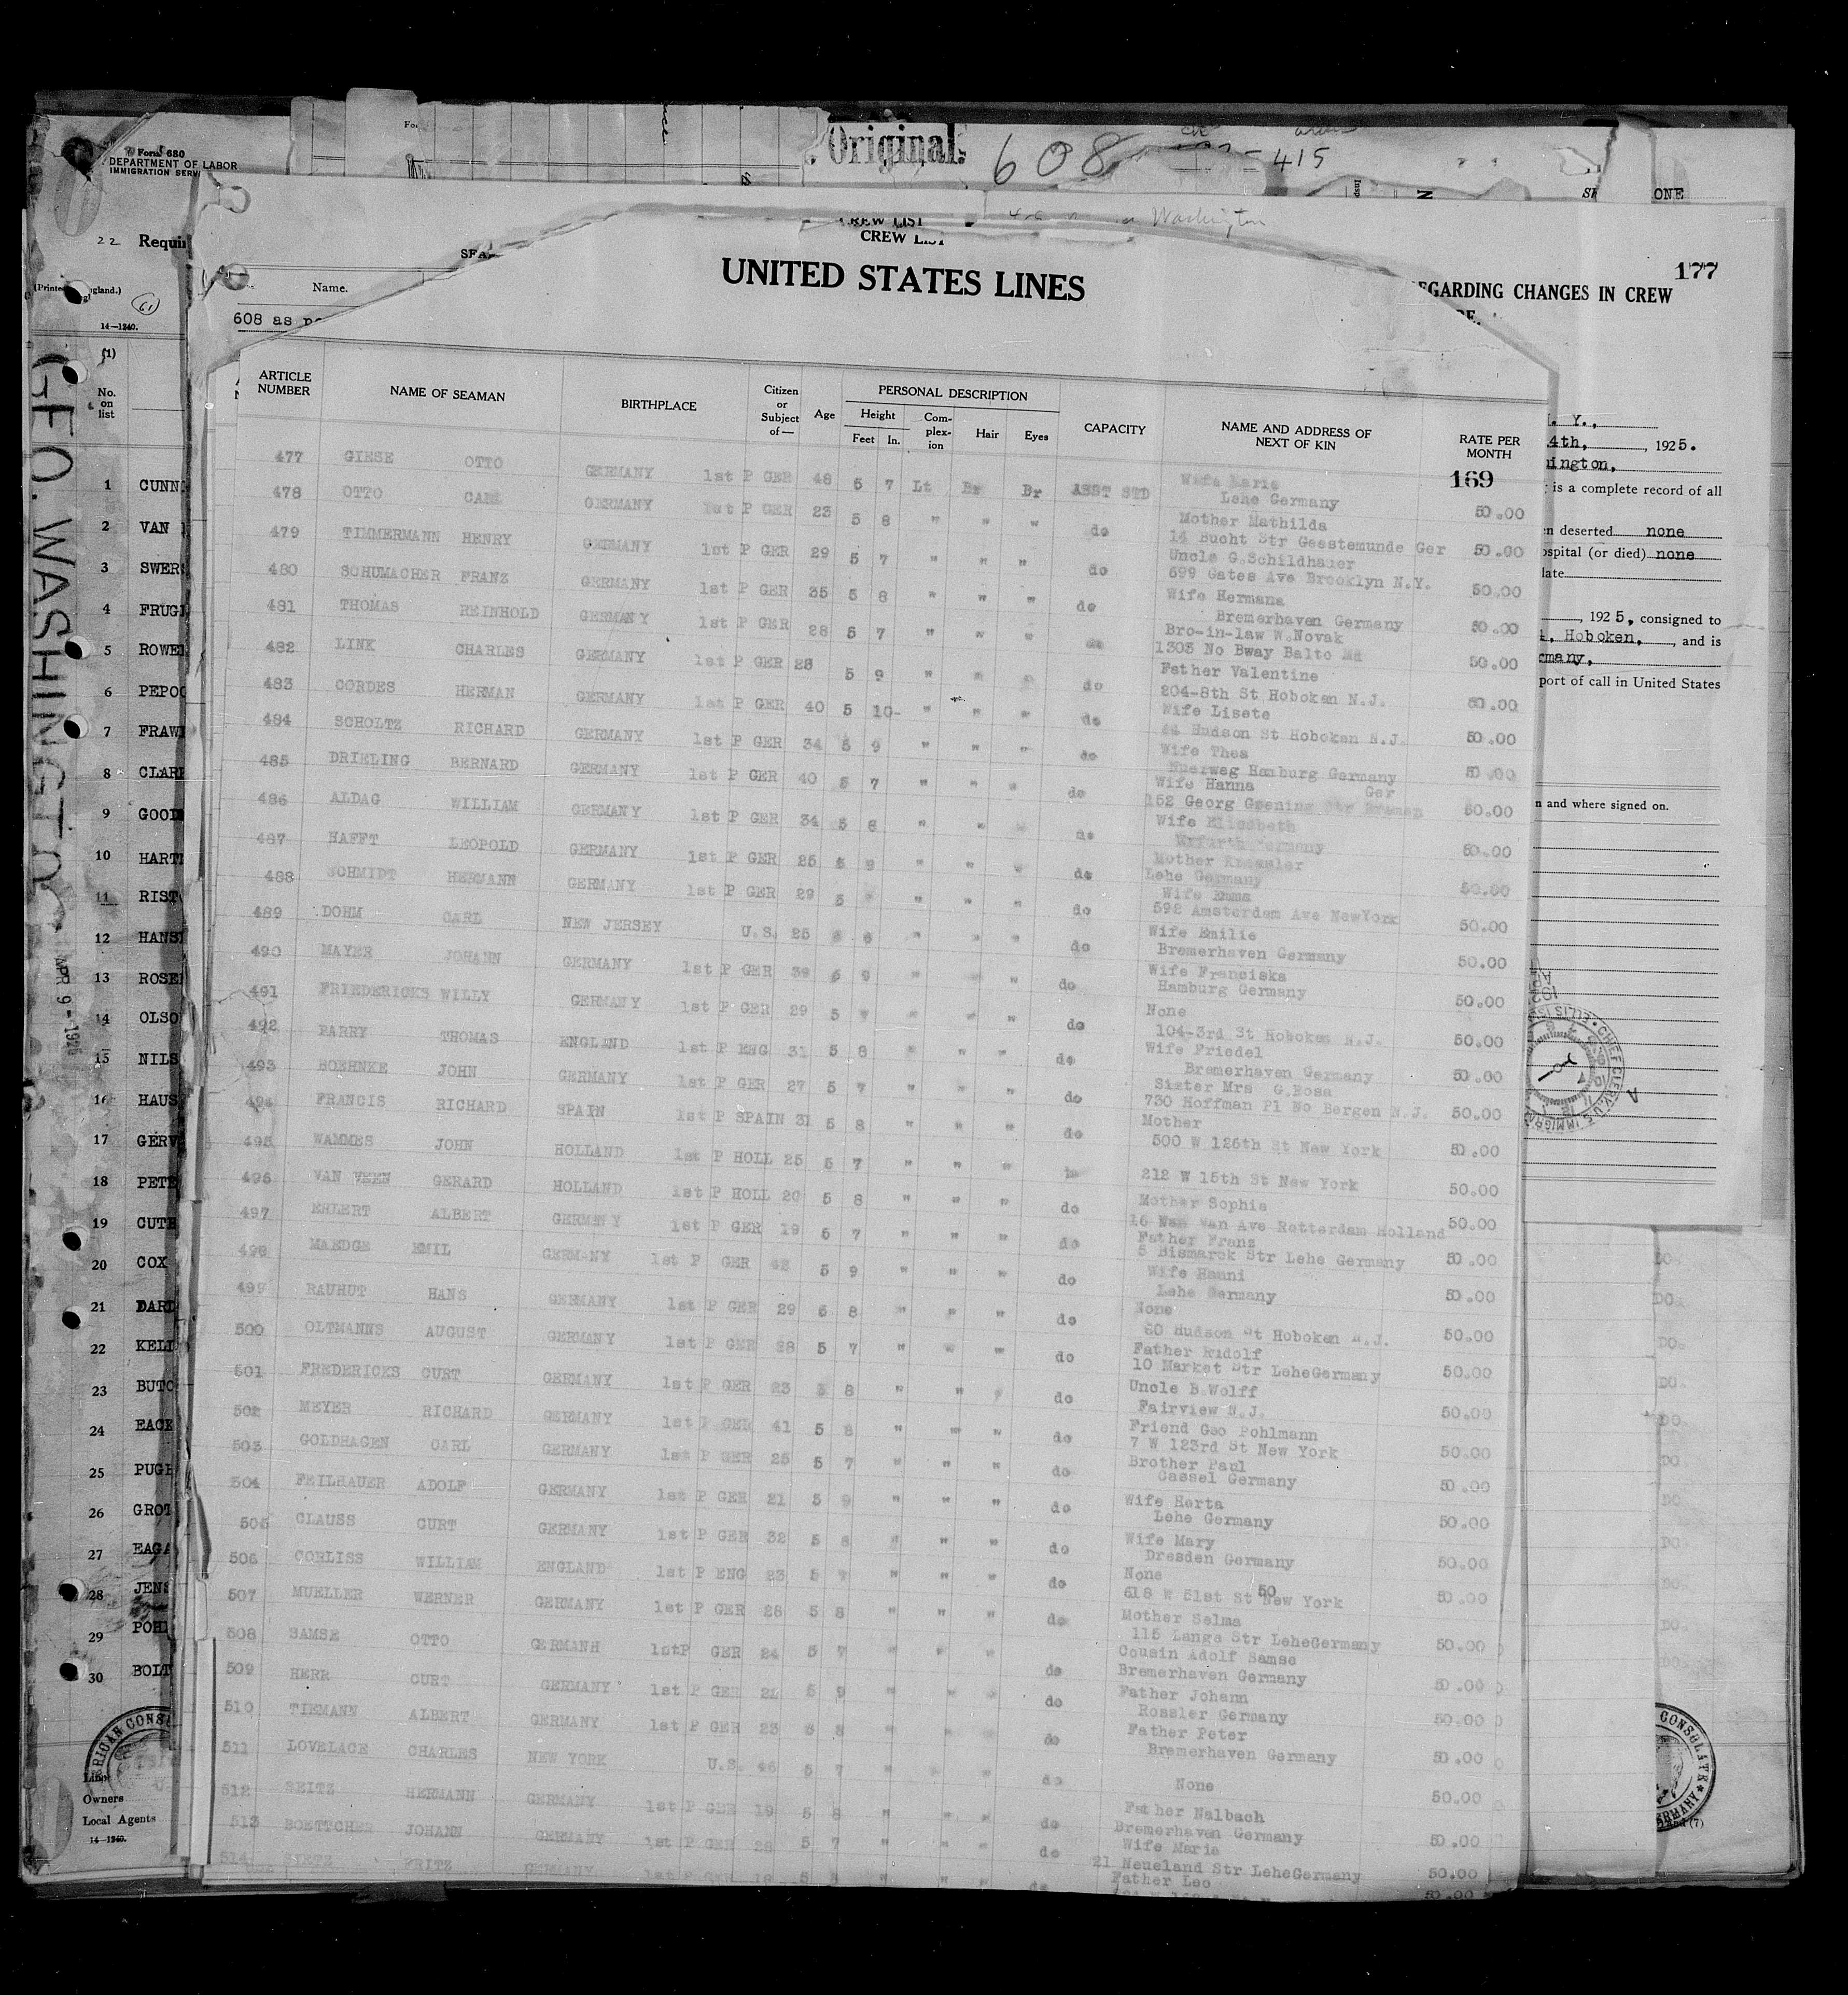 Form 680
DEPARTMENT OF LABOR
IMMIGRATION SERV
Original.
608
415
ONE
22 Requi
CREW LIST
CREW LIST
Washington
177
UNITED STATES LINES
Name.
REGARDING CHANGES IN CREW
608 as pe
61
14—1240.
(1)
No. on list
GEO. WASHINGTON
APR 9 - 192
ARTICLE NUMBER NAME OF SEAMAN BIRTHPLACE Citizen or Subject of— Age PERSONAL DESCRIPTION CAPACITY NAME AND ADDRESS OF NEXT OF KIN RATE PER MONTH
Height Complexion Hair Eyes
Feet In.
169
477 GIESE OTTO GERMANY 1st P GER 48 5 7 Lt Br Br ASST STD Wife Marie Lehe Germany 50.00
478 OTTO CARL GERMANY 1st P GER 23 5 8 " " " do Mother Mathilda 14 Bucht Str Geestemunde Ger 50.00
479 TIMMERMANN HENRY GERMANY 1st P GER 29 5 7 " " " do Uncle G.Schildhauer 699 Gates Ave Brooklyn N.Y. 50.00
480 SCHUMACHER FRANZ GERMANY 1st P GER 35 5 8 " " " do Wife Hermana Bremerhaven Germany 50.00
481 THOMAS REINHOLD GERMANY 1st P GER 28 5 7 " " " do Bro-in-law W.Novak 1303 No Bway Balto Md 50.00
482 LINK CHARLES GERMANY 1st P GER 28 5 9 " " " do Father Valentine 204-8th St Hoboken N.J. 50.00
483 CORDES HERMAN GERMANY 1st P GER 40 5 10- " " " do Wife Lisete Hudson St Hoboken N.J. 50.00
484 SCHOLTZ RICHARD GERMANY 1st P GER 34 5 9 " " " do Wife Thea Hamburg Germany 50.00
485 DRIELING BERNARD GERMANY 1st P GER 40 5 7 " " " do Wife Hanna 152 Georg Str Bremen Ger 50.00
486 ALDAG WILLIAM GERMANY 1st P GER 34 5 6 " " do Wife Elisabeth Germany 50.00
487 HAFFT LEOPOLD GERMANY 1st P GER 25 5 9 " " " do Mother Lehe Germany 50.00
488 SCHMIDT HERMANN GERMANY 1st P GER 29 5 " " " do Wife Emma 592 Amsterdam Ave NewYork 50.00
489 DOHM CARL NEW JERSEY U.S. 25 6 " " " do Wife Emilie Bremerhaven Germany 50.00
490 MAYER JOHANN GERMANY 1st P GER 39 5 9 " " do Wife Franciska Hamburg Germany 50.00
491 FRIEDERICKS WILLY GERMANY 1st P GER 29 5 " do None 104-3rd St Hoboken N.J. 50.00
492 PARRY THOMAS ENGLAND 1st P ENG 31 5 8 " " " do Wife Friedel Bremerhaven Germany 50.00
493 BOEHNKE JOHN GERMANY 1st P GER 27 5 7 " " " do Sister Mrs G.Bosa 730 Hoffman Pl No Bergen N.J. 50.00
494 FRANCIS RICHARD SPAIN 1st P SPAIN 31 5 8 " " " do Mother 500 W 126th St New York 50.00
495 WAMMES JOHN HOLLAND 1st P HOLL 25 5 7 " " " 212 W 15th St New York 50.00
496 VAN VEEN GERARD HOLLAND 1st P HOLL 20 5 8 " " " do Mother Sophia 16 Van Ave Rotterdam Holland 50.00
497 EHLERT ALBERT GERMANY 1st P GER 19 5 7 " " " do Father Franz 5 Bismarck Str Lehe Germany 50.00
498 MAEDGE EMIL GERMANY 1st P GER 42 5 9 " " " do Wife Hanni Lehe Germany 50.00
499 RAUHUT HANS GERMANY 1st P GER 29 5 8 " " " do None 60 Hudson St Hoboken N.J. 50.00
500 OLTMANNS AUGUST GERMANY 1st P GER 28 5 7 " " " do Father Rudolf 10 Market Str LeheGermany 50.00
501 FREDERICKS CURT GERMANY 1st P GER 23 5 8 " " " do Uncle B.Wolff Fairview N.J. 50.00
502 MEYER RICHARD GERMANY 1st P GER 41 5 8 " " " do Friend Geo Pohlmann 7 W 123rd St New York 50.00
503 GOLDHAGEN CARL GERMANY 1st P GER 25 5 7 " " " do Brother Paul Cassel Germany 50.00
504 FEILHAUER ADOLF GERMANY 1st P GER 21 5 9 " " " do Wife Herta Lehe Germany 50.00
505 CLAUSS CURT GERMANY 1st P GER 32 5 8 " " " do Wife Mary Dresden Germany 50.00
506 CORLISS WILLIAM ENGLAND 1st P ENG 23 5 " " " do None 618 W 51st St New York 50 50.00
507 MUELLER WERNER GERMANY 1st P GER 28 5 8 " " " do Mother Selma 115 Lange Str LeheGermany 50.00
508 SAMSE OTTO GERMANH 1stP GER 24 5 7 " " " do Cousin Adolf Samse Bremerhaven Germany 50.00
509 HERR CURT GERMANY 1st P GER 21 5 9 " " " do Father Johann Rossler Germany 50.00
510 TIEMANN ALBERT GERMANY 1st P GER 23 5 8 " do Father Peter Bremerhaven Germany 50.00
511 LOVELACE CHARLES NEW YORK U.S. 46 5 7 " " " do None 50.00
512 SEITZ HERMANN GERMANY 1st P GER 19 5 8 " " " do Father Nalbach Bremerhaven Germany 50.00
513 BOETTCHER JOHANN GERMANY 1st P GER 29 5 7 " " " do Wife Maria 21 Neueland Str LeheGermany 50.00
514 FRITZ GERMANY 1st P GER 5 8 " " " do Father Leo 50.00
1 CUNN
2 VAN
3 SWER
4 FRUG
5 ROWE
6 PEPO
7 FRAW
8 CLAR
9 GOOD
10 HART
11 RIST
12 HANS
13 ROSE
14 OLSO
15 NILS
16 HAUS
17 GERV
18 PETE
19 CUTE
20 COX
21 DARL
22 KELL
23 BUTC
24 EACK
25 PUGH
26 GROT
27 EAGA
28 JENS
29 POHL
30 BOLT
Owners
Local Agents
14—1240.
N. Y.,
4th, , 1925.
hington,
is a complete record of all
en deserted none
ospital (or died) none
date
, 1925, consigned to
Hoboken, , and is
rmany,
port of call in United States
n and where signed on.
CHIEF CLERK, U.S. IMMIGR
ELLIS IS
RICAN CONS
CONSULATE
GERMANY